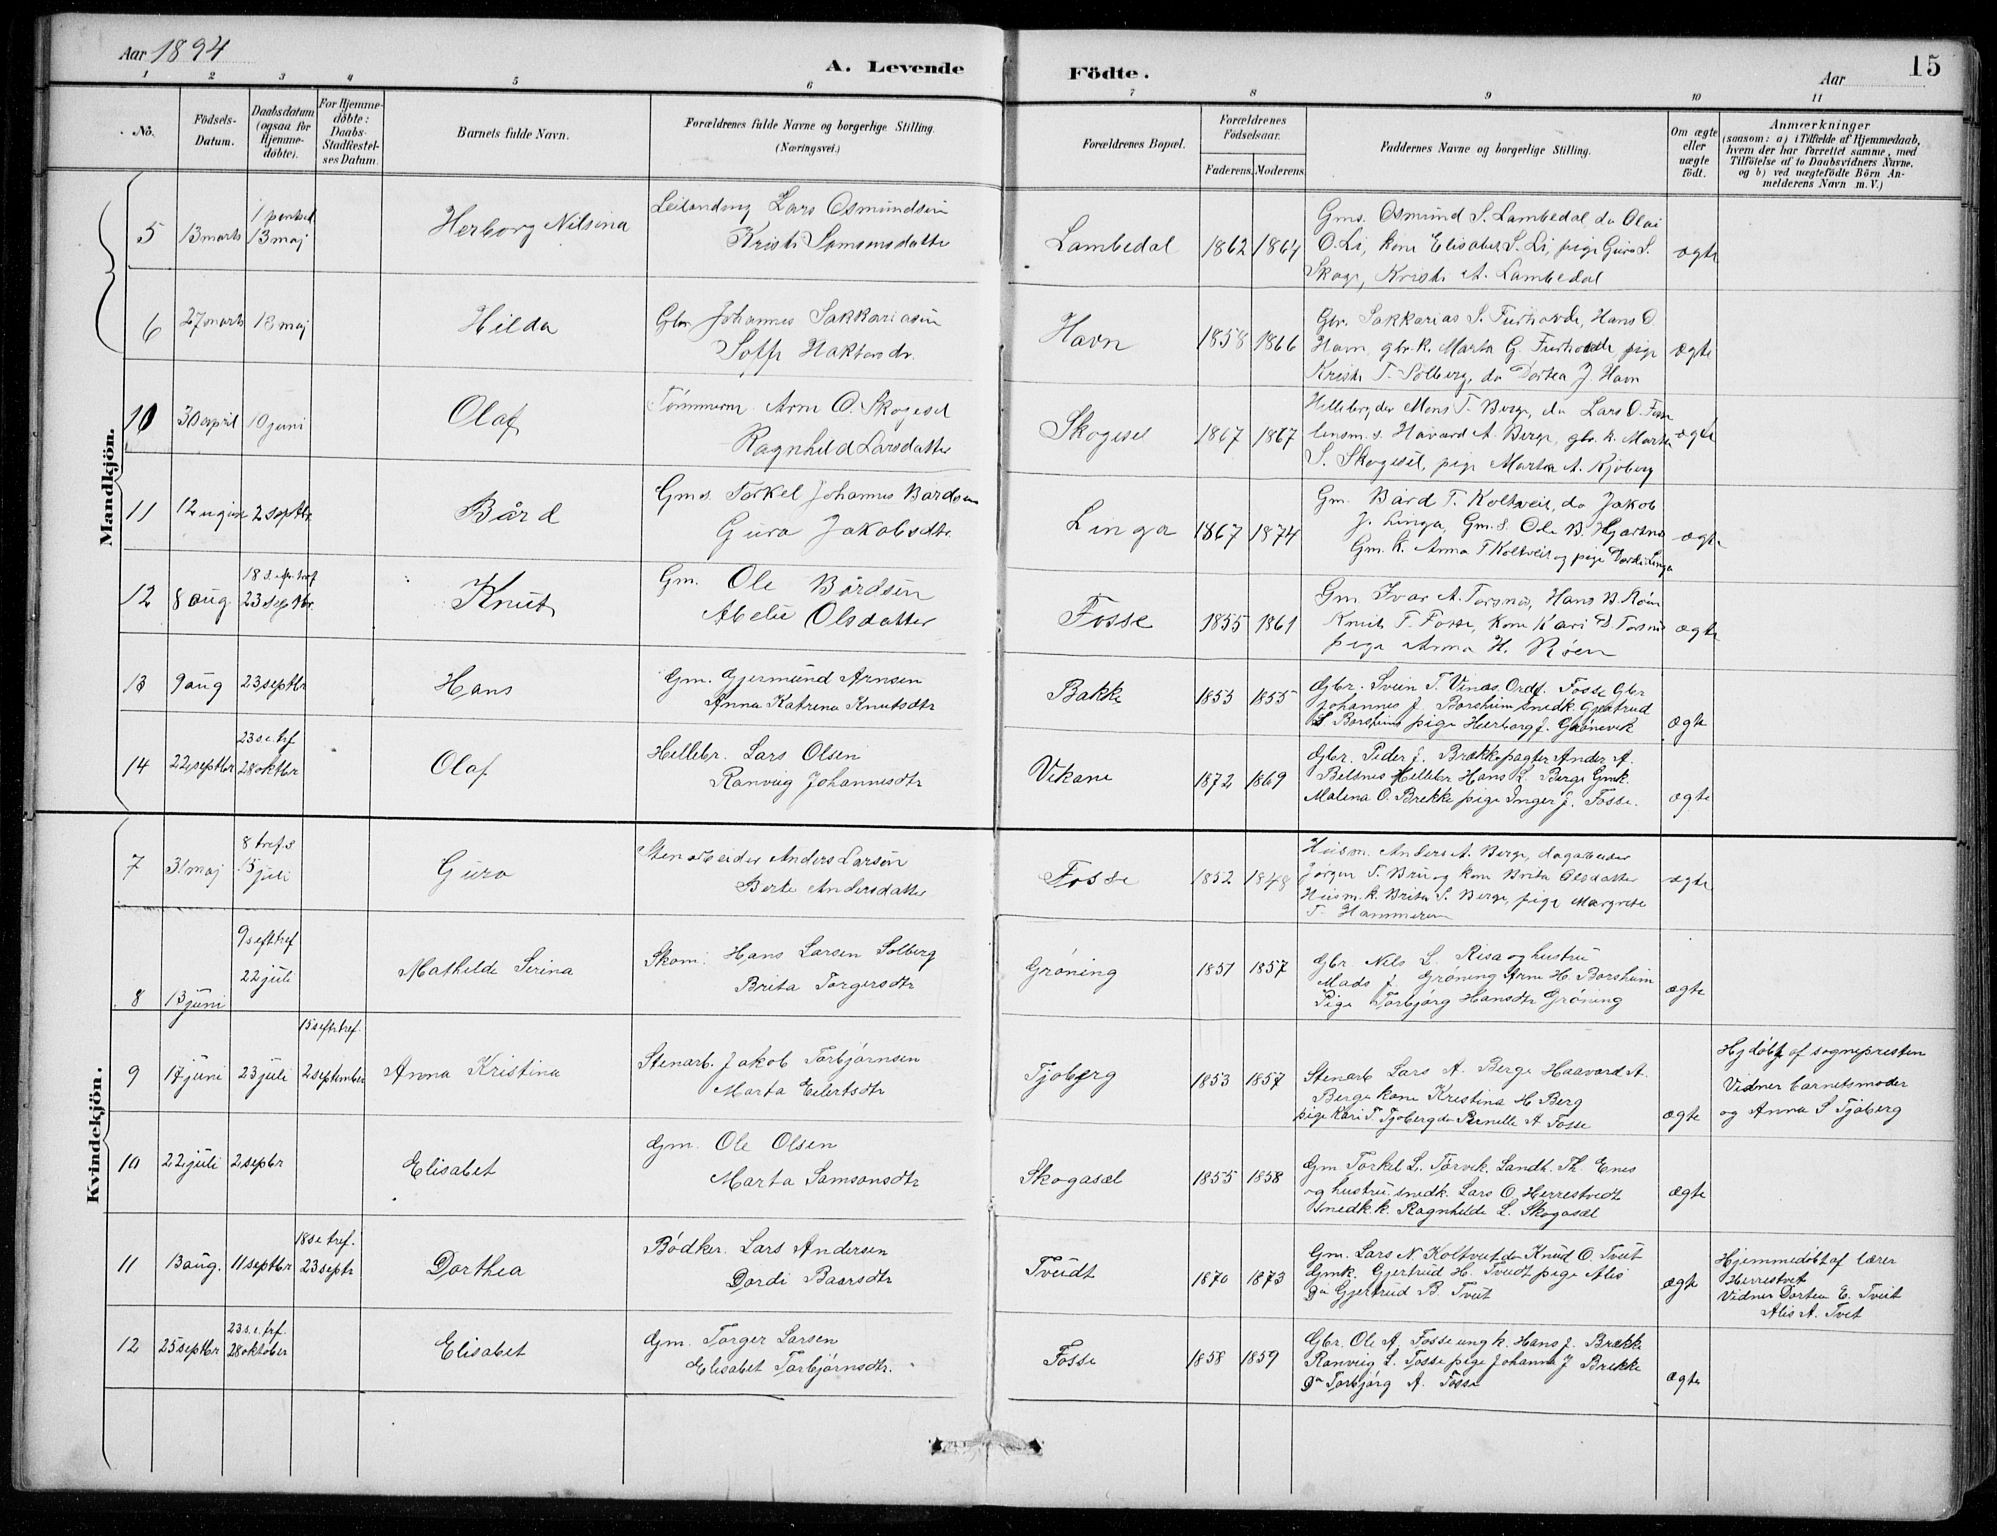 Aar 1894
A. Levende
Födte.
Aar
15
1 2 3 4 5 6 7 8 9 10 11
No.
Födsels-
Datum.
Daabsdatum
(ogsaa for
Hjemme-
döbte).
For Hjemme-
döbte:
Daabs-
Stadfæstel-
ses Datum.
Barnets fulde Navn.
Forældrenes fulde Navne og borgerlige Stilling.
(Næringsvei.)
Forældrenes Bopæl.
Forældrenes
Födselsaar.
Faderens. Moderens.
Faddernes Navne og borgerlige Stilling.
Om ægte
eller
uægte
födt.
Anmærkninger
(saasom: a) i Tilfælde af Hjemmedaab,
hvem der har forrettet samme, med
Tilföielse af to Daabsvidners Navne,
og b) ved uægtefödte Börn An-
melderens Navn m. V.)
Mandkjön.
5 13 marts 13 maj Herborg Nilsina
Lars Osmundsen
Kristi Samsonsdatter
Lambedal 1862 1864
Gms. Osmund S. Lambedal do Olai
O. Li, kone Elisabet S. Li, pige Guro S.
Skoge, Kristi A. Lambedal
ægte
6 27 marts 13 maj Hilda
Gbr. Johannes Sakkariasen
Havn 1858 1866
Gbr. Sakkarias S. Hans O.
Havn, gbr. k. Marta G. pige
Kristi T. Solberg, do Dortea J. Havn
ægte
10 30 april 10 juni Olaf
Tömmerm. Arne O. Skogesel
Ragnhild Larsdatter
Skogesel 1867 1867
Mons T. Berge, do Lars O. Fosse
lensm. s. Håvard A. Berge, gbr. k. Marta
S. Skogesel, pige Marta A. Kjöberg
ægte
11 2 septbr. Bård
Gms. Torkel Johannes Bardsen
Guro Jakobsdtr.
Linga 1867 1874
Gm. Bård T. Koltveit, do Jakob
J. Linga, Gm. s. Ole B. Hjartnes
Gm. k. Anna T Koltveit og pige Linga
ægte
12 8 aug. 23 septbr. Knut
Gm. Ole Bårdsen
Abelu Olsdatter
Fosse 1855 1861
Gm. Ivar A. Torsnes, Hans B. Röen
Knut T. Fosse, kone Kari Torsnes
pige Anna H. Röen
ægte
13 9 aug 23 septbr Hans
Gm. Gjermund Arnsen
Anna Katrina Knutsdtr
Bakke 1853 1855
Gbr. Svein T. Vines, Ordf. Fosse Gbr
Johannes J. Borsheim snedk. Gjertrud
S Borsheim pige Herborg J. Grönevik
ægte
14 22 septbr 28 oktbr Olaf
Hellebr. Lars Olsen
Ranveig Johannesdtr
Vikane 1872 1869
Gbr. Peder J. Brække pagter Ander A.
Belsnes Hellebr Hans L. Berge Gmk.
Malena O. Brekke pige Inger J. Fosse.
ægte
Kvindekjön.
7 31 maj 15 juli Guro
Stenarbeider Anders Larsen
Berte Andersdatter
Fosse 1852 1848
Husm. Anders A. Berge, dagarbeider
Jörgen T. Bru og kone Brita Olsdatter
Husm. k. Brita S. Berge, pige Margrete
T. Hammeren
ægte
8 13 juni 22 juli Mathilde Serina
Skom. Hans Larsen Solberg
Brita Torgersdtr
Gröning 1851 1857
Gbr Nils L. Risa og hustru
Mads J. Gröning Arne H. Borsheim
Pige Torbjörg Hansdtr Gröning
ægte
9 17 juni 23 juli 2 september Anna Kristina
Stenarb. Jakob Torbjörnsen
Marta Eilertsdtr
Tjoberg 1853 1857
Stenarb Lars A. Berge Haavard A.
Berge kone Kristina H. Berg
pige Kari T. Tjoberg do Pernelle A Fosse
ægte
Hjdöbt af sognepresten
Vidner barnetsmoder
og Anna S Tjöberg
10 22 juli 2 septbr Elisabet
Gm. Ole Olsen
Marta Samsonsdtr
Skogasæl 1855 1858
Gm Torkel L. Törvik. Landh. Th. Enes
og hustru snedk. Lars O. Herrestvedt
Snedk. k. Ragnhilde L. Skogasæl
ægte
11 13 aug. 11 septbr 23 septr Dorthea
Bödker Lars Andersen
Dordi Baarsdtr
Tveidt 1870 1873
Gm. Lars N Koltveit do Knud O. Tveit
Gmk. Gjertrud H. Tveidt pige Alis
Do Gjertrud B. Tveit
ægte
Hjemmedöbt af lærer
Herrestvet
Vidner Dortea E. Tveit
Alis A. Tvet
12 25 septbr 28 oktober Elisabet
Gm. Torger Larsen
Elisabet Torbjörnsdtr.
Fosse 1858 1859
Gbr. Ole A. Fosse ung k. Hans J. Brække
Ranveig L. Fosse pige Johanna J Brekke
Do Torbjörg A. Fosse
ægte